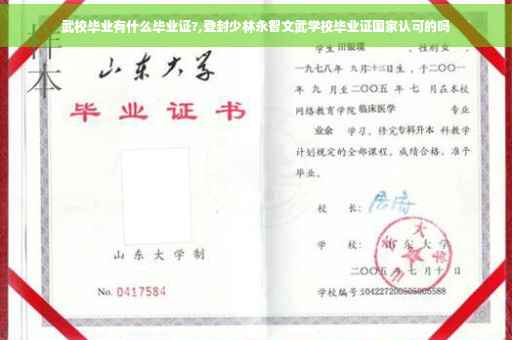 武校毕业有什么毕业证?,登封少林永智文武学校毕业证国家认可的吗
样本
山东大学
毕业证书
山东大学制
No. 0417584
学生
性别女,
一九七八年 九月十二日生,于二〇〇一
年 九 月至二〇〇五 年 七 月在本校
网络教育学院 临床医学 专业
业余 学习,修完专科升本科教学
计划规定的全部课程,成绩合格,准予
毕业。
校 长:
学 校: 山东大学
二〇〇五 年 七 月 十 日
学校编号: